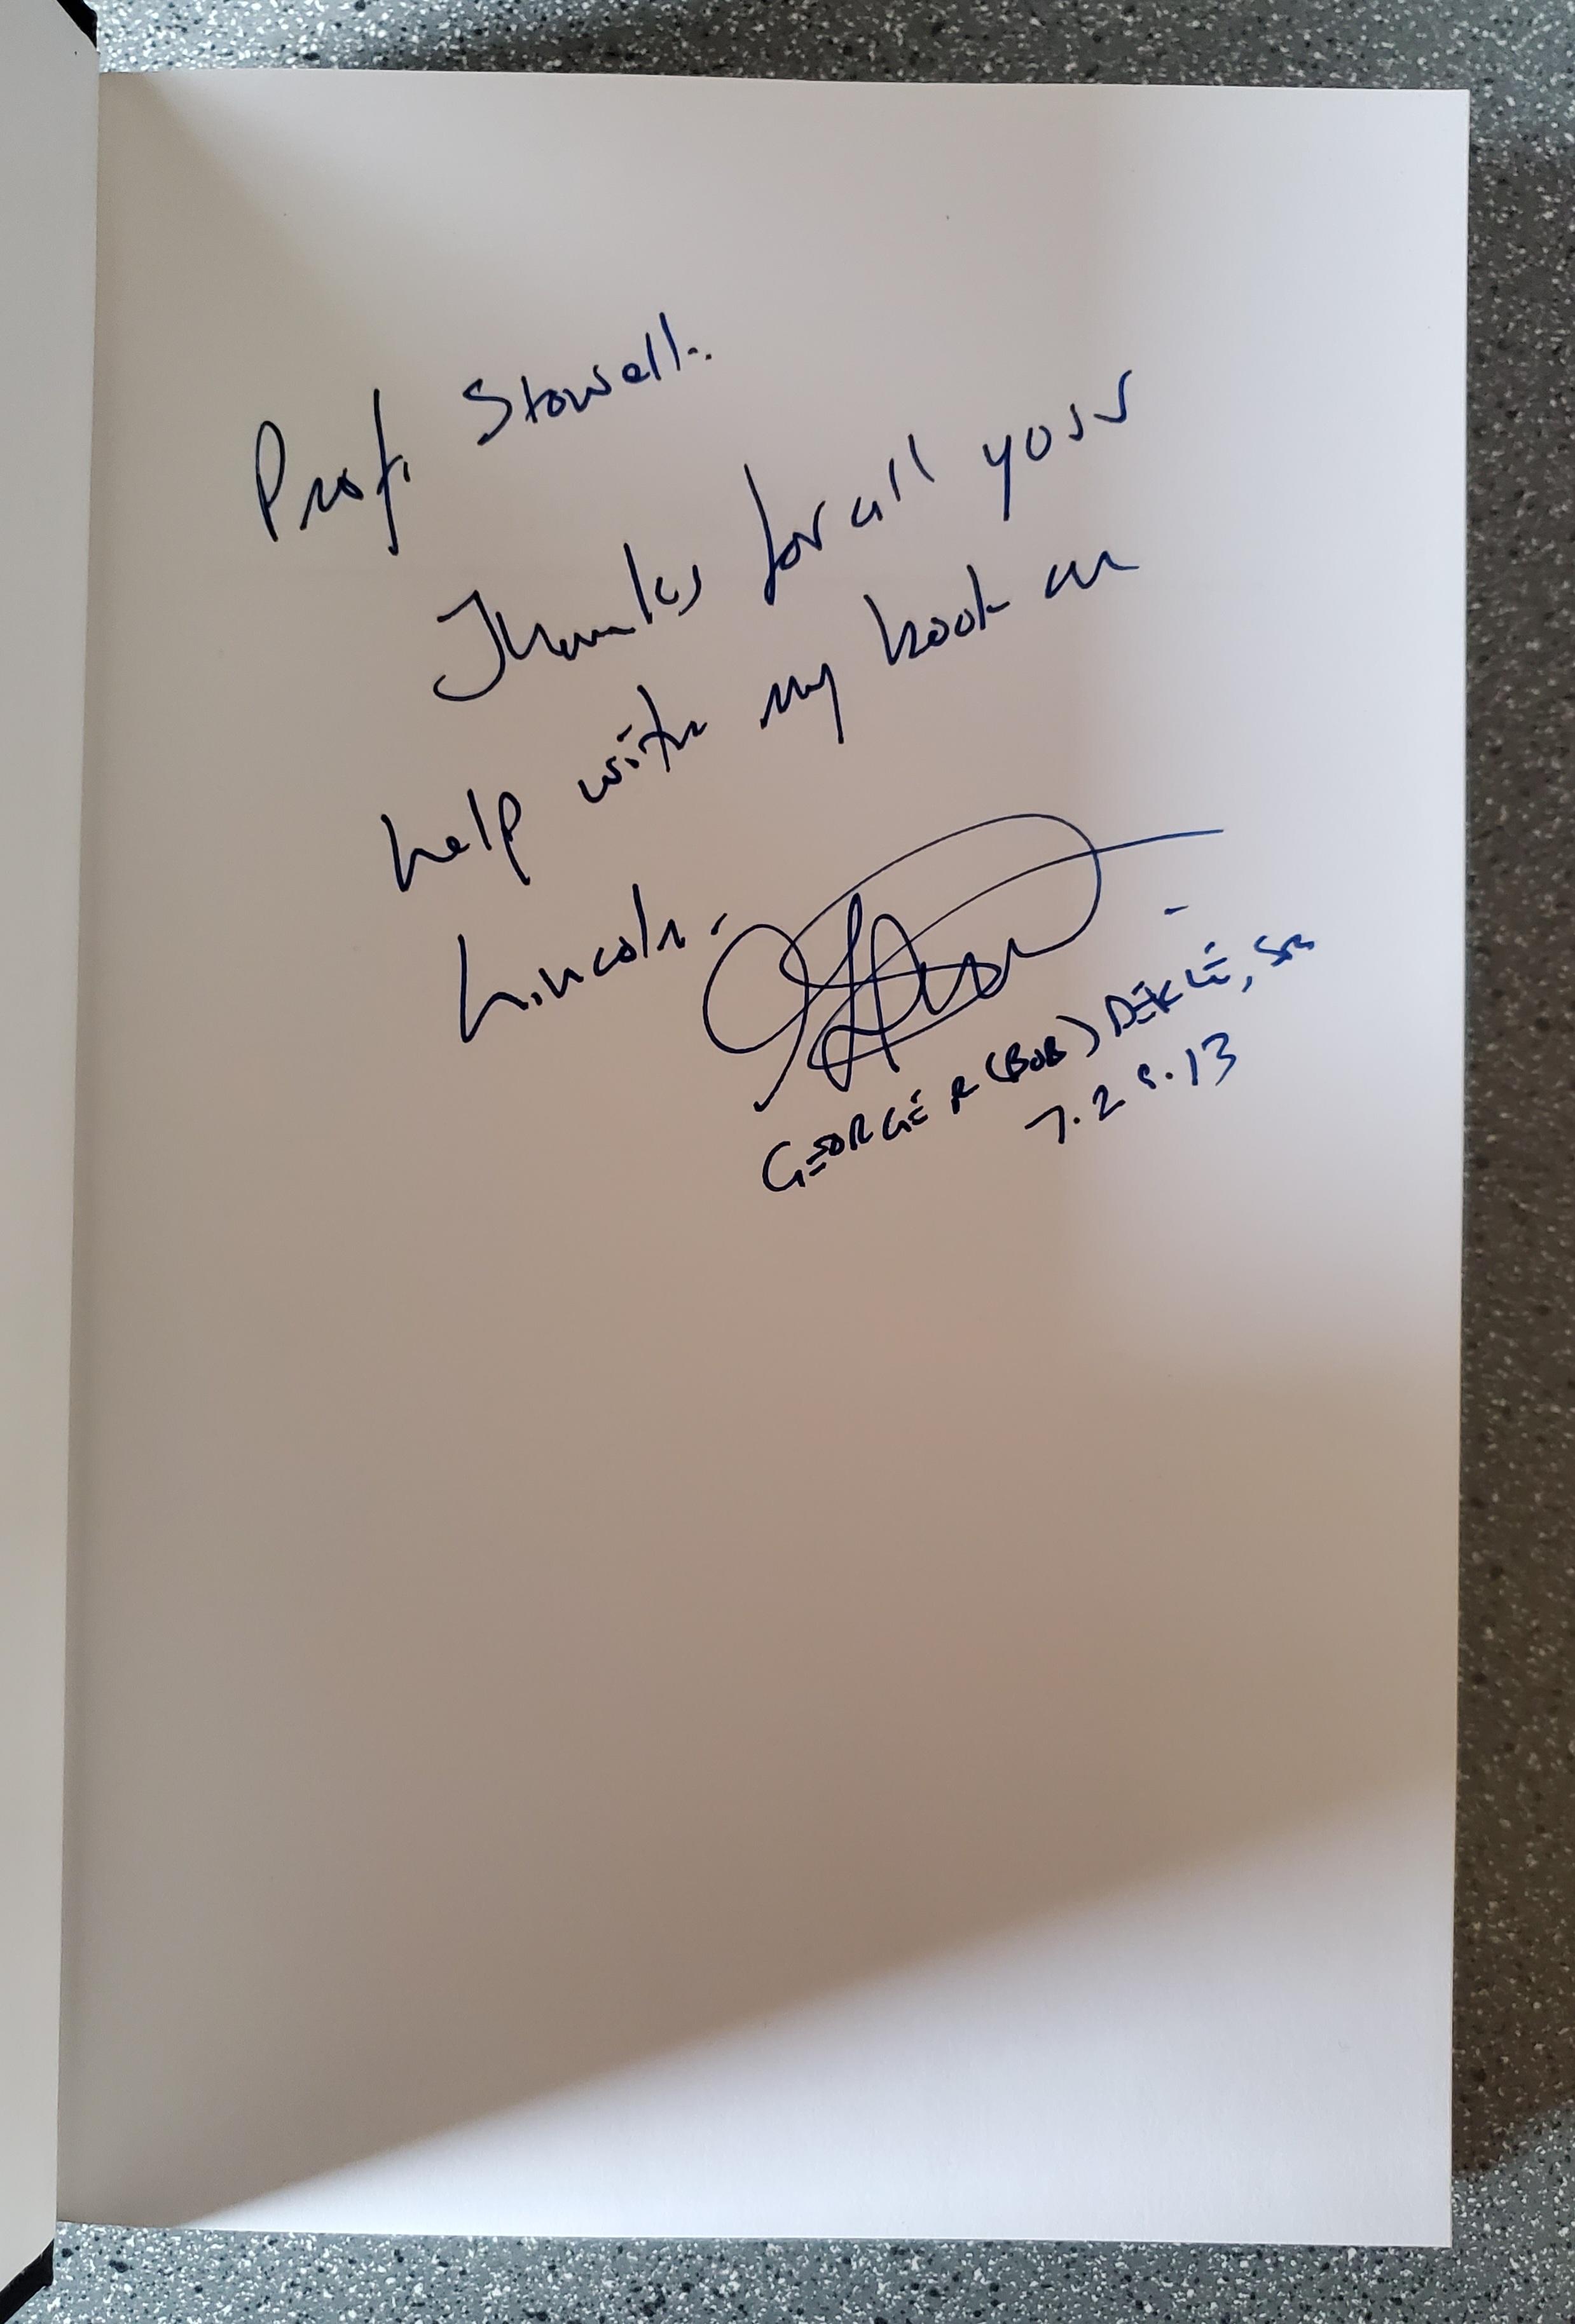 Prof. Stowell:
Thanks for all your
help with my book on
Lincoln.
GEORGE R (BOB) DEKLE, SR
7.28.13